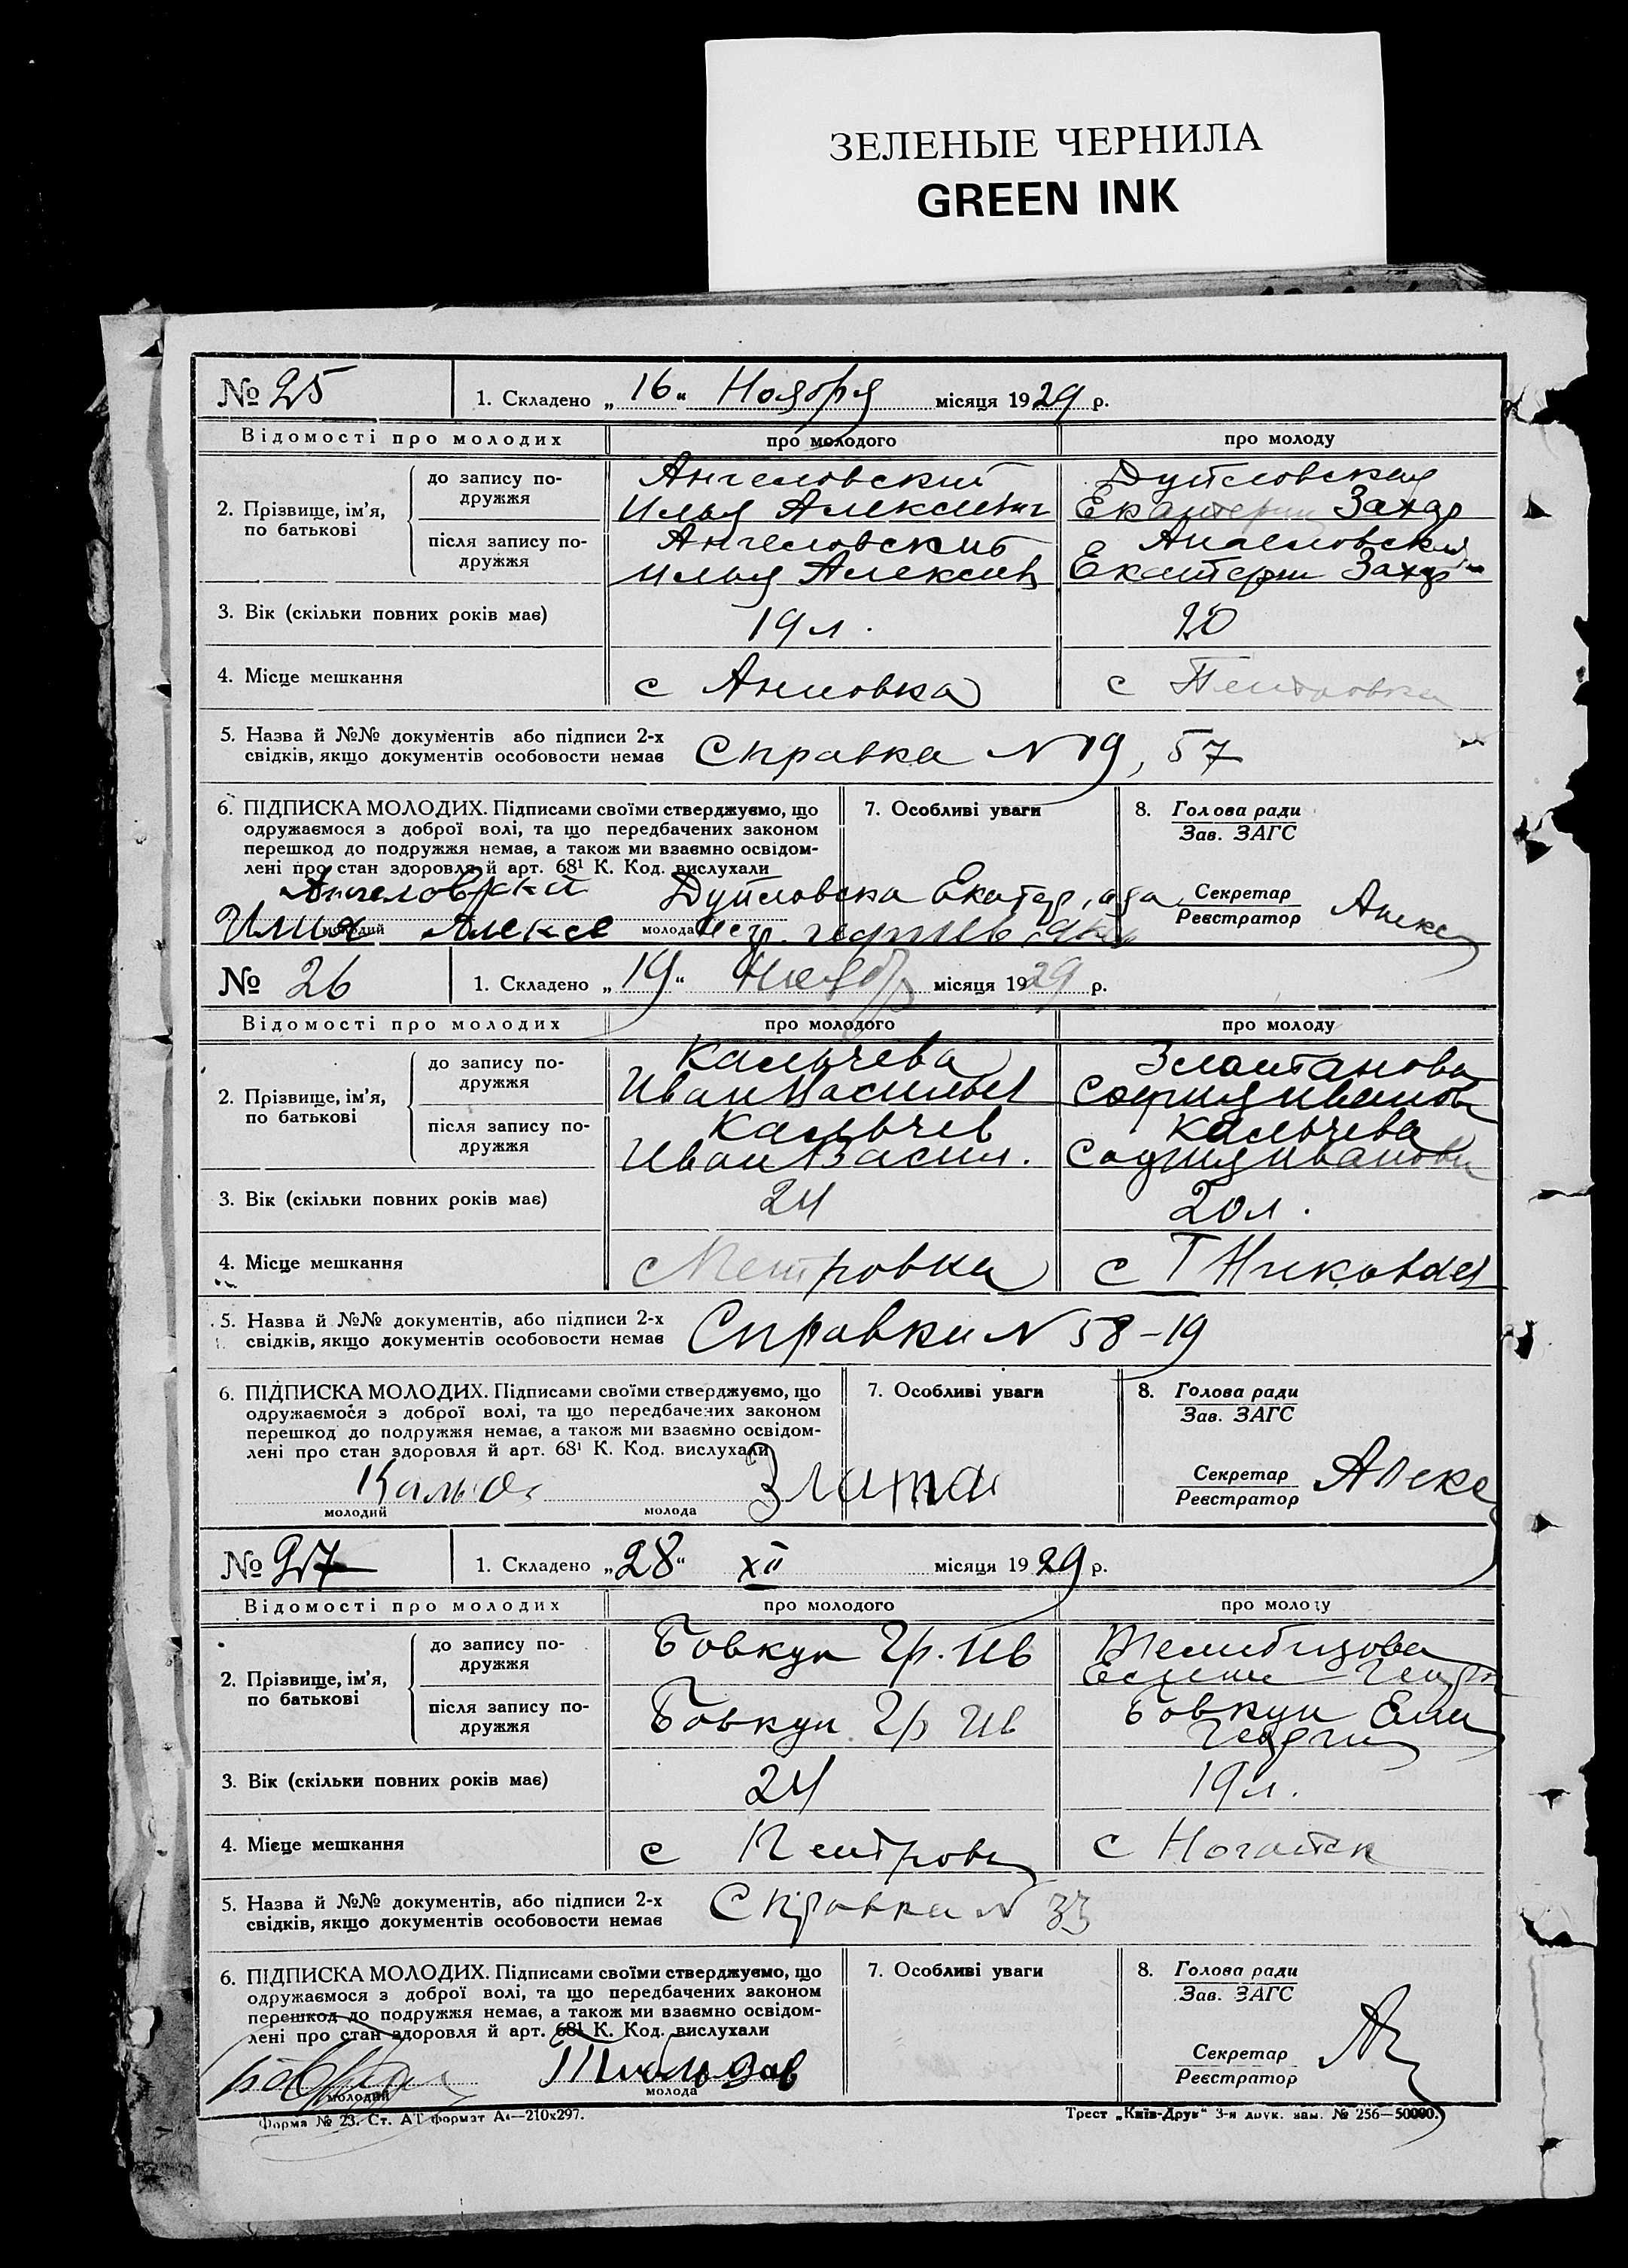 ЗЕЛЕНЫЕ ЧЕРНИЛА
GREEN INK
№ 25 1. Складено „16“ Ноября місяця 1929 р.
Відомості про молодих про молодого про молоду
2. Прізвище, ім’я, по батькові
до запису по-
дружжя
Ангеловский
Илья Алексеевич Захар
після запису по-
дружжя
Ангеловский
Илья Алексеев Екатерин Захар
3. Вік (скільки повних років має) 19 л. 20
4. Місце мешкання с Анновка с Петровка
5. Назва й №№ документів або підписи 2-х
свідків, якщо документів особовости немає
Справка N 19, 57
6. ПІДПИСКА МОЛОДИХ. Підписами своїми стверджуємо, що
одружаємося з доброї волі, та що передбачених законом
перешкод до подружжя немає, а також ми взаємно освідом-
лені про стан здоровля й арт. 68¹ К. Код. вислухали
молодий молода
7. Особливі уваги
8. Голова ради
Зав. ЗАГС
Секретар
Реєстратор
Алекс
№ 26 1. Складено „19“ Ноябр місяця 1929 р.
Відомості про молодих про молодого про молоду
2. Прізвище, ім’я,
по батькові
до запису по-
дружжя
Кальчева Златанова
Иван Васильев София Иванов
після запису по-
дружжя
Кальчев Кальчева
Иван Васил. София Иванови
3. Вік (скільки повних років має) 24 20 л.
4. Місце мешкання с Петровка с
5. Назва й №№ документів, або підписи 2-х
свідків, якщо документів особовости немає
Справки N 58-19
6. ПІДПИСКА МОЛОДИХ. Підписами своїми стверджуємо, що
одружаємося з доброї волі, та що передбачених законом
перешкод до подружжя немає, а також ми взаємно освідом-
лені про стан здоровля й арт. 68¹ К. Код. вислухали
Злата
молодий молода
7. Особливі уваги
8. Голова ради
Зав. ЗАГС
Секретар
Реєстратор
Алекс
№ 27 1. Складено „28“ XII місяця 1929 р.
Відомості про молодих про молодого про молоду
2. Прізвище, ім’я,
по батькові
до запису по-
дружжя
Бовкун Гр. Ив
після запису по-
дружжя
Бовкун Гр Ив Бовкун
3. Вік (скільки повних років має) 24 19 л.
4. Місце мешкання с Петровк с Ногайск
5. Назва й №№ документів, або підписи 2-х
свідків, якщо документів особовости немає
Справка N 33
6. ПІДПИСКА МОЛОДИХ. Підписами своїми стверджуємо, що
одружаємося з доброї волі, та що передбачених законом
перешкод до подружжя немає, а також ми взаємно освідом-
лені про стан здоровля й арт. 68¹ К. Код. вислухали
молодий молода
7. Особливі уваги
8. Голова ради
Зав. ЗАГС
Секретар
Реєстратор
Форма № 23. Ст. АТ формат А₄—210х297.
Трест „Київ-Друк“ 3-я друк. зам. № 256—50000.